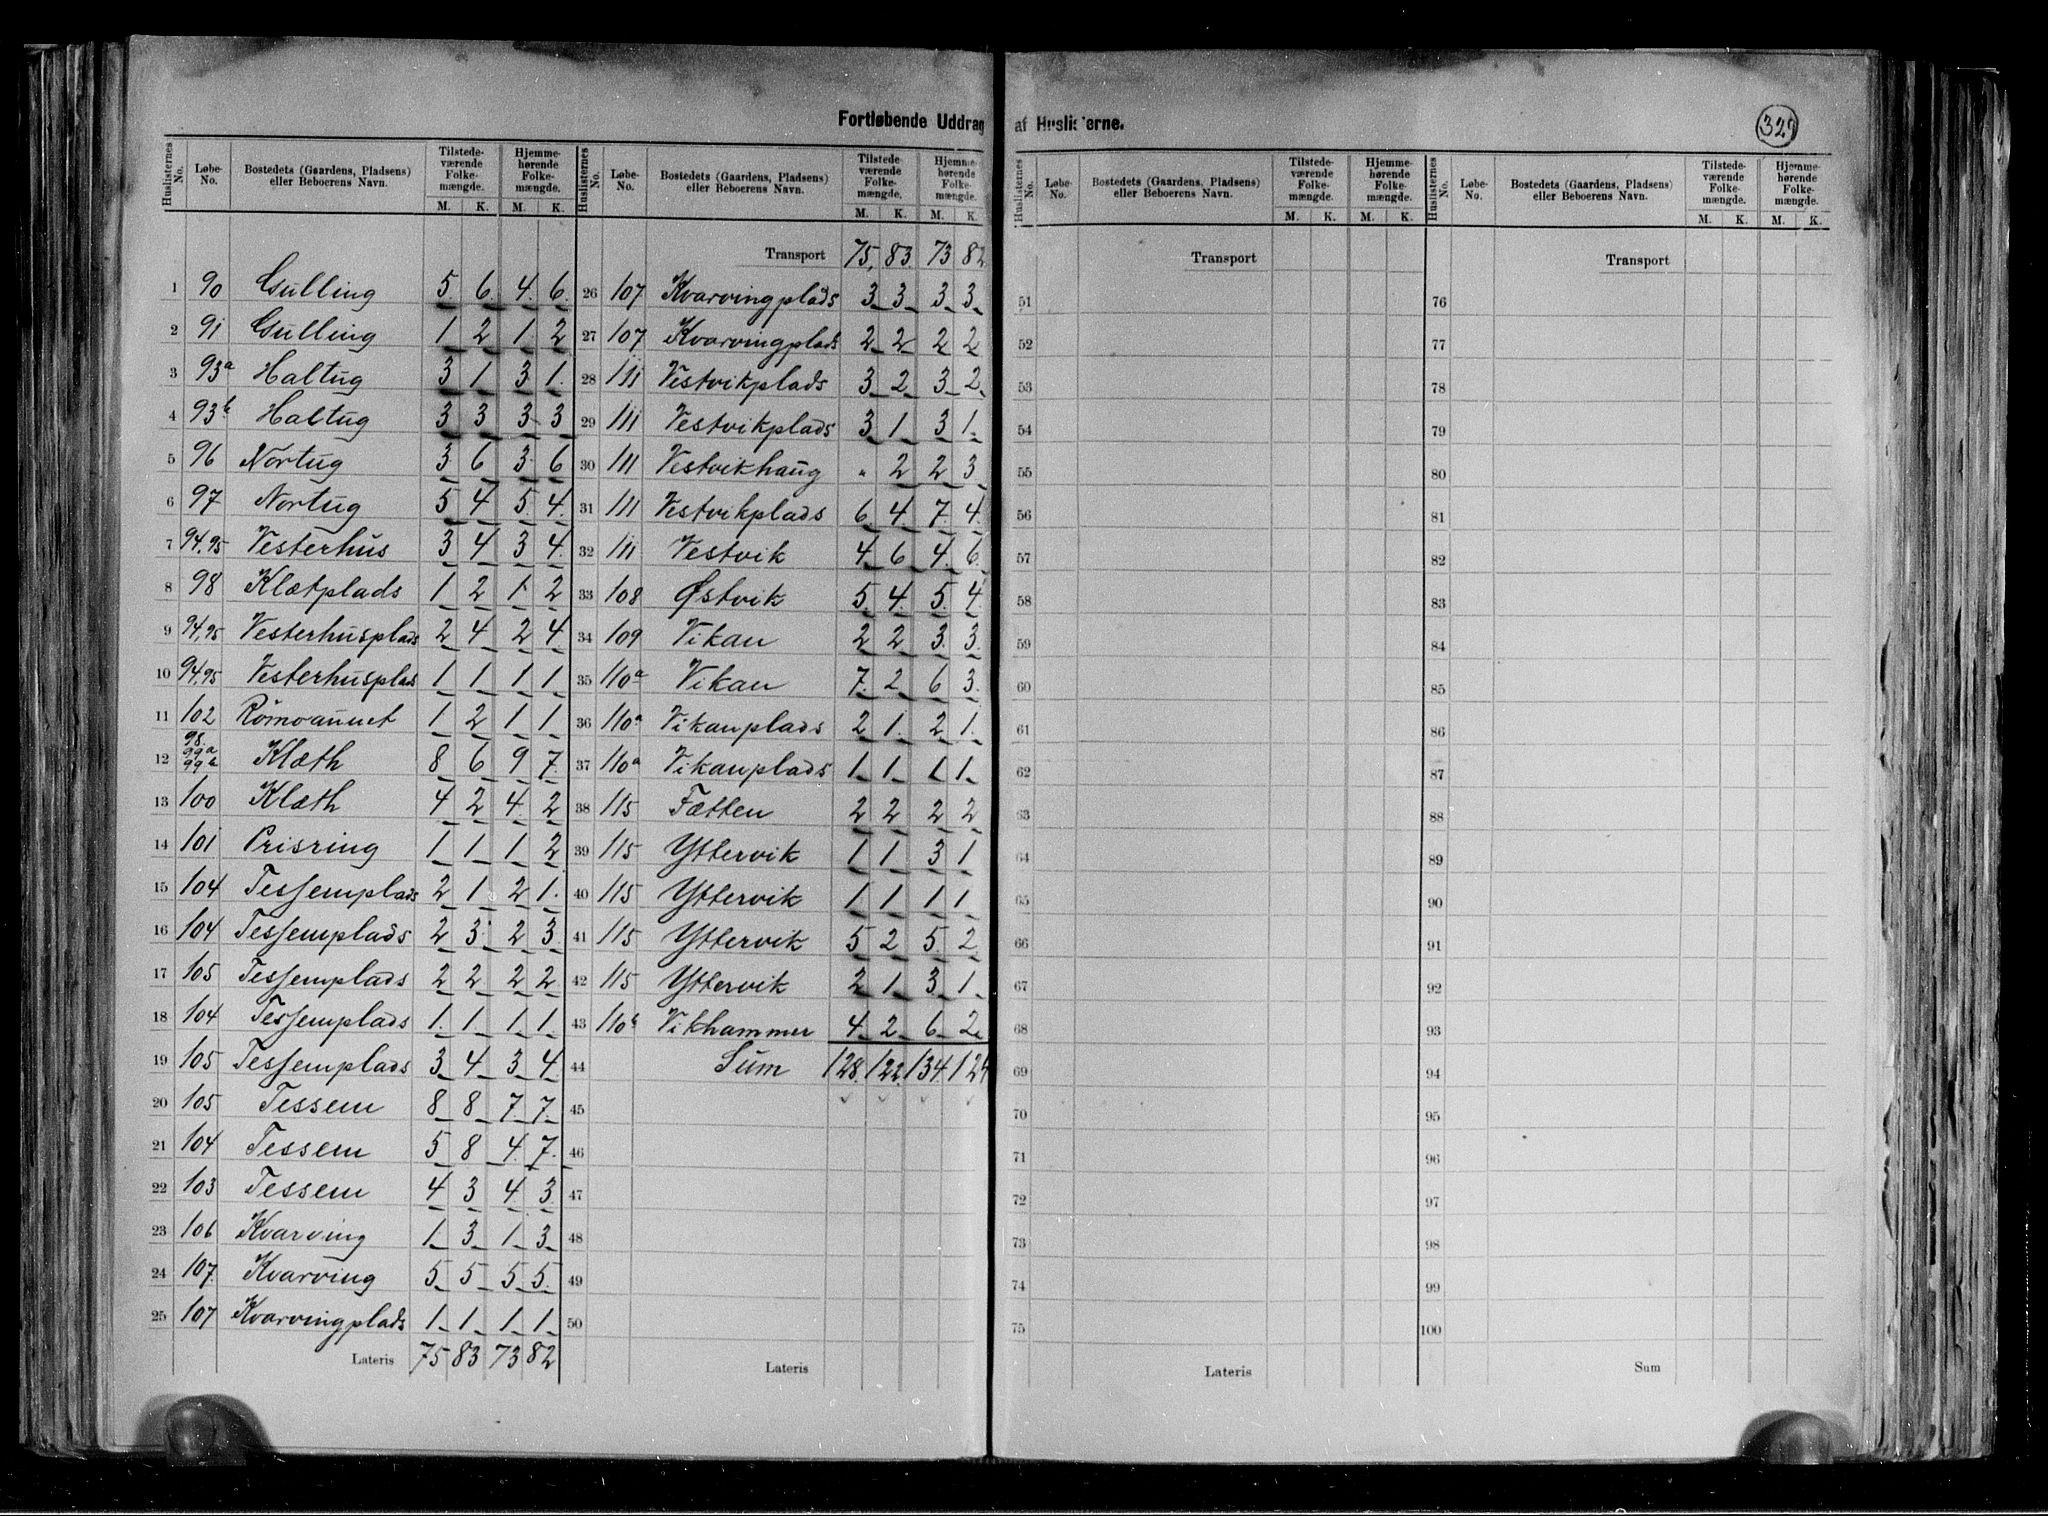 Fortløbende Uddrag af Huslisterne.
329
Huslisternes No. Løbe-No. Bostedets (Gaardens, Pladsens) eller Beboerens Navn. Tilstedeværende Folkemængde. M. K. Hjemmehørende Folkemængde. M. K.
1 90 Gulling 5 6 4 6
2 91 Gulling 1 2 1 2
3 93a Haltug 3 1 3 1
4 93b Haltug 3 3 3 3
5 96 Nortug 3 6 3 6
6 97 Nortug 5 4 5 4
7 94,95 Vesterhus 3 4 3 4
8 98 Klætplads 1 2 1 2
9 94,95 Vesterhusplads 2 4 2 4
10 94,95 Vesterhusplads 1 1 1 1
11 102 1 2 1 1
12 98. 99a 99b Klæth 8 6 9 7
13 100 Klæth 4 2 4 2
14 101 Prisring 1 1 1 2
15 104 Tessemplads 2 1 2 1
16 104 Tessemplads 2 3 2 3
17 105 Tessemplads 2 2 2 2
18 104 Tessemplads 1 1 1 1
19 105 Tessemplads 3 4 3 4
20 105 Tessem 8 8 7 7
21 104 Tessem 5 8 4 7
22 103 Tessem 4 3 4 3
23 106 Kvarving 1 3 1 3
24 107 Kvarving 5 5 5 5
25 107 Kvarvingplads 1 1 1 1
Lateris 75 83 73 82
Huslisternes No. Løbe-No. Bostedets (Gaardens, Pladsens) eller Beboerens Navn. Tilstedeværende Folkemængde. M. K. Hjemmehørende Folkemængde. M. K.
Transport 75 83 73 82
26 107 Kvarvingplads 3 3 3 3
27 107 Kvarvingplads 2 2 2 2
28 111 Vestvikplads 3 2 3 2
29 111 Vestvikplads 3 1 3 1
30 111 Vestvikhaug " 2 2 3
31 111 Vestvikplads 6 4 7 4
32 111 Vestvik 4 6 4 6
33 108 Østvik 5 4 5 4
34 109 Vikan 2 2 3 3
35 110a Vikan 7 2 6 3
36 110a Vikanplads 2 1 2 1
37 110a Vikanplads 1 1 1 1
38 115 Fætten 2 2 2 2
39 115 Yttervik 1 1 3 1
40 115 Yttervik 1 1 1 1
41 115 Yttervik 5 2 5 2
42 115 Yttervik 2 1 3 1
43 110b Vikhammer 4 2 6 2
44 Sum 128 122 134 124
45
46
47
48
49
50
Lateris
Huslisternes No. Løbe-No. Bostedets (Gaardens, Pladsens) eller Beboerens Navn. Tilstedeværende Folkemængde. M. K. Hjemmehørende Folkemængde. M. K.
Transport
51
52
53
54
55
56
57
58
59
60
61
62
63
64
65
66
67
68
69
70
71
72
73
74
75
Lateris
Huslisternes No. Løbe-No. Bostedets (Gaardens, Pladsens) eller Beboerens Navn. Tilstedeværende Folkemængde. M. K. Hjemmehørende Folkemængde. M. K.
Transport
76
77
78
79
80
81
82
83
84
85
86
87
88
89
90
91
92
93
94
95
96
97
98
99
100
Sum